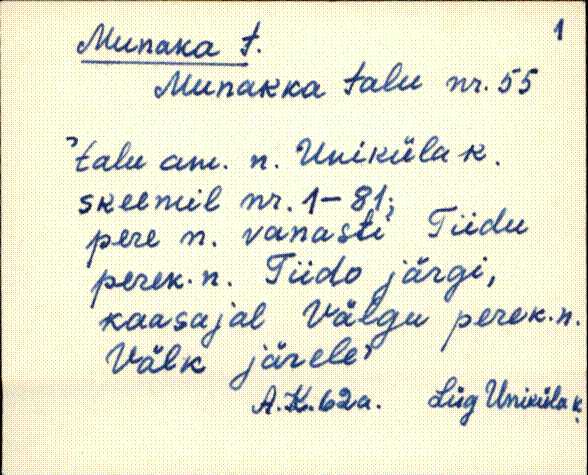 1
Munaka t.
Munakka talu nr. 55
"talu am. n. Uniküla k.
skeemil nr. 1-81;
pere n. vanasti Tiidu
perek. n. Tiido järgi,
kaasajal Välgu perek. n.
Välk järele"
A.K. 62 a. Lüg Uniküla k.